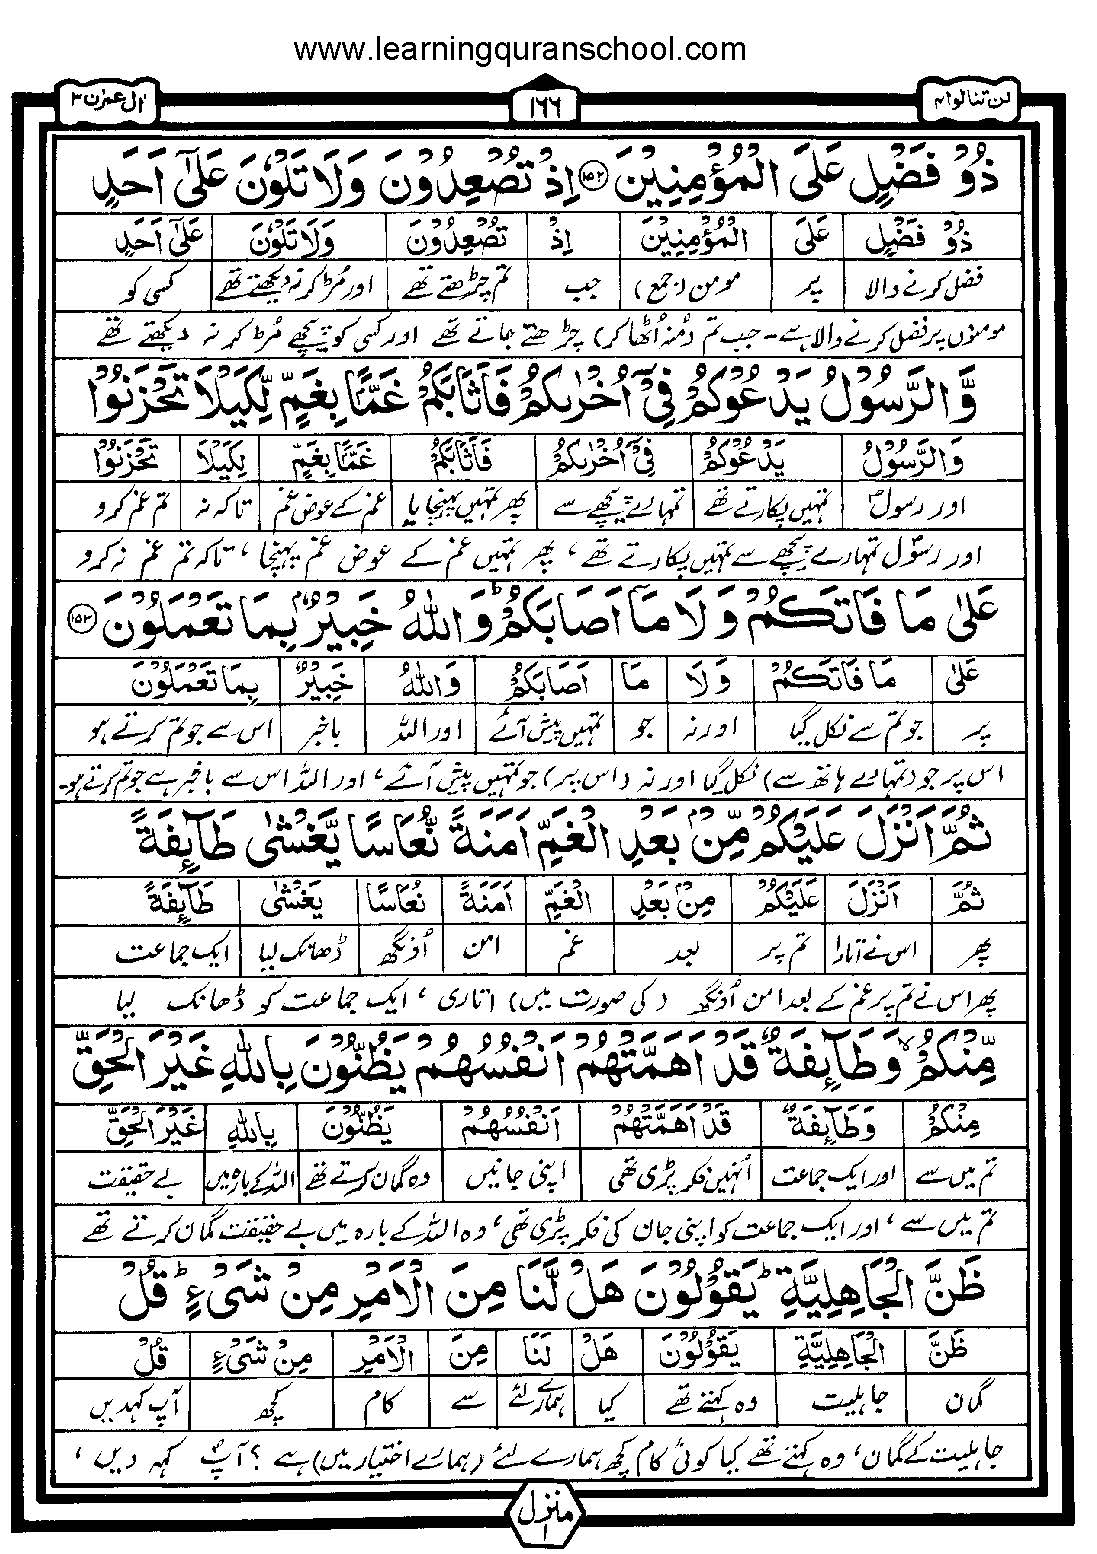 www.learningquranschool.com
لن تنالوا ٤ ١٦٦ اٰل عمرٰن ٣
ذُوْ فَضْلٍ عَلَى الْمُؤْمِنِيْنَ ﴿۱۵۲﴾ اِذْ تُصْعِدُوْنَ وَلَا تَلْوٗنَ عَلٰٓى اَحَدٍ
ذُوْ فَضْلٍ عَلَى الْمُؤْمِنِيْنَ اِذْ تُصْعِدُوْنَ وَلَا تَلْوٗنَ عَلٰٓى اَحَدٍ
فضل کرنے والا پر مومن (جمع) جب تم چڑھتے تھے اور مُڑ کر نہ دیکھتے تھے کسی کو
مومنوں پر فضل کرنے والا ہے۔ جب تم (مُنہ اُٹھا کر) چڑھتے جاتے تھے اور کسی کو پیچھے مُڑ کر نہ دیکھتے تھے
وَّالرَّسُوْلُ يَدْعُوْكُمْ فِيْٓ اُخْرٰىكُمْ فَاَثَابَكُمْ غَمًّۢا بِغَمٍّ لِّكَيْلَا تَحْزَنُوْا
وَالرَّسُوْلُ يَدْعُوْكُمْ فِيْٓ اُخْرٰىكُمْ فَاَثَابَكُمْ غَمًّۢا بِغَمٍّ لِكَيْلَا تَحْزَنُوْا
اور رسولؐ تمہیں پکارتے تھے تمہارے پیچھے سے پھر تمہیں پہنچایا غم کے عوض غم تاکہ نہ تم غم کرو
اور رسولؐ تمہارے پیچھے سے تمہیں پکارتے تھے، پھر تمہیں غم کے عوض غم پہنچا، تاکہ تم غم نہ کرو
عَلٰى مَا فَاتَكُمْ وَلَا مَآ اَصَابَكُمْ ؕ وَاللّٰهُ خَبِيْرٌۢ بِمَا تَعْمَلُوْنَ ﴿۱۵۳﴾
عَلٰى مَا فَاتَكُمْ وَلَا مَآ اَصَابَكُمْ وَاللّٰهُ خَبِيْرٌۢ بِمَا تَعْمَلُوْنَ
پر جو تم سے نکل گیا اور نہ جو تمہیں پیش آئے اور اللہ باخبر اس سے جو تم کرتے ہو
اس پر جو (تمہارے ہاتھ سے) نکل گیا اور نہ (اس پر) جو تمہیں پیش آئے، اور اللہ اس سے باخبر ہے جو تم کرتے ہو۔
ثُمَّ اَنْزَلَ عَلَيْكُمْ مِّنْۢ بَعْدِ الْغَمِّ اَمَنَةً نُّعَاسًا يَّغْشٰى طَآئِفَةً
ثُمَّ اَنْزَلَ عَلَيْكُمْ مِنْۢ بَعْدِ الْغَمِّ اَمَنَةً نُعَاسًا يَغْشٰى طَآئِفَةً
پھر اس نے اتارا تم پر بعد غم امن اُونگھ ڈھانک لیا ایک جماعت
پھر اس نے تم پر غم کے بعد امن اُونگھ (کی صورت میں) اتاری، ایک جماعت کو ڈھانک لیا
مِّنْكُمْ ۙ وَطَآئِفَةٌ قَدْ اَهَمَّتْهُمْ اَنْفُسُهُمْ يَظُنُّوْنَ بِاللّٰهِ غَيْرَ الْحَقِّ
مِنْكُمْ وَطَآئِفَةٌ قَدْ اَهَمَّتْهُمْ اَنْفُسُهُمْ يَظُنُّوْنَ بِاللّٰهِ غَيْرَ الْحَقِّ
تم میں سے اور ایک جماعت اُنہیں فکر پڑی تھی اپنی جانیں وہ گمان کرتے تھے اللہ کے بارہ میں بے حقیقت
تم میں سے، اور ایک جماعت کو اپنی جان کی فکر پڑی تھی، وہ اللہ کے بارہ میں بے حقیقت گمان کرتے تھے
ظَنَّ الْجَاهِلِيَّةِ ؕ يَقُوْلُوْنَ هَلْ لَّنَا مِنَ الْاَمْرِ مِنْ شَيْءٍ ؕ قُلْ
ظَنَّ الْجَاهِلِيَّةِ يَقُوْلُوْنَ هَلْ لَنَا مِنَ الْاَمْرِ مِنْ شَيْءٍ قُلْ
گمان جاہلیت وہ کہتے تھے کیا ہمارے لئے سے کام کچھ آپ کہدیں
جاہلیت کے گمان، وہ کہتے تھے کیا کوئی کام کچھ ہمارے لئے (ہمارے اختیار میں) ہے؟ آپؐ کہہ دیں،
منزل ١